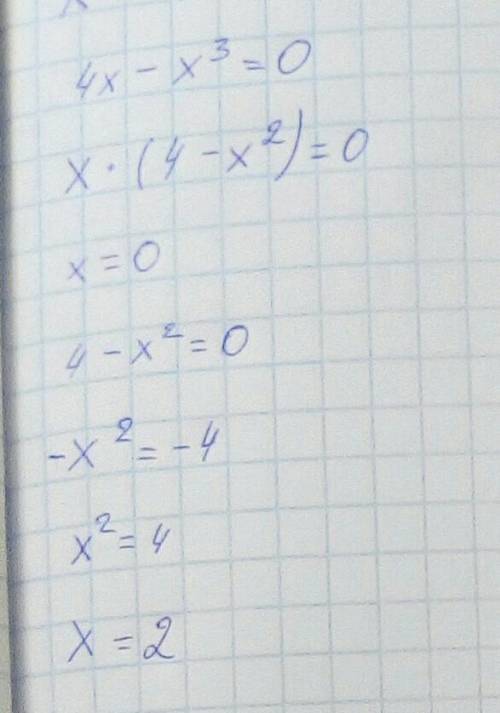 4x - x³ = 0
x · (4 - x²) = 0
x = 0
4 - x² = 0
-x² = -4
x² = 4
x = 2